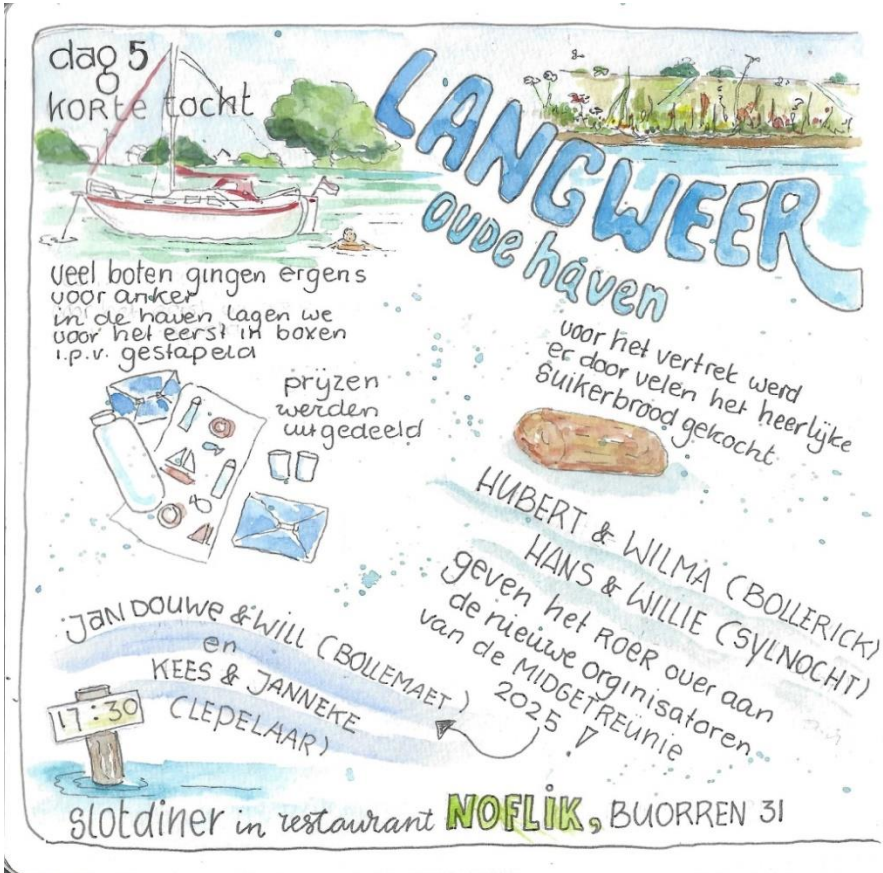 dag 5
KORTE tocht
LANGWEER
oude haven
veel boten gingen ergens
voor anker
in de haven lagen we
voor het eerst in boxen
i.p.v. gestapeld
prijzen
werden
uitgedeeld
voor het vertrek werd
er door velen het heerlijke
suikerbrood gekocht
HUBERT & WILMA (BOLLERICK)
HANS & WILLIE (SYLNOCHT)
geven het ROER over aan
de nieuwe orginisatoren
van de MIDGETREÜNIE
2025!
JAN DOUWE & WILL (BOLLEMAET)
en
KEES & JANNEKE
(LEPELAAR)
17:30
slotdiner in restaurant NOFLIK, BUORREN 31